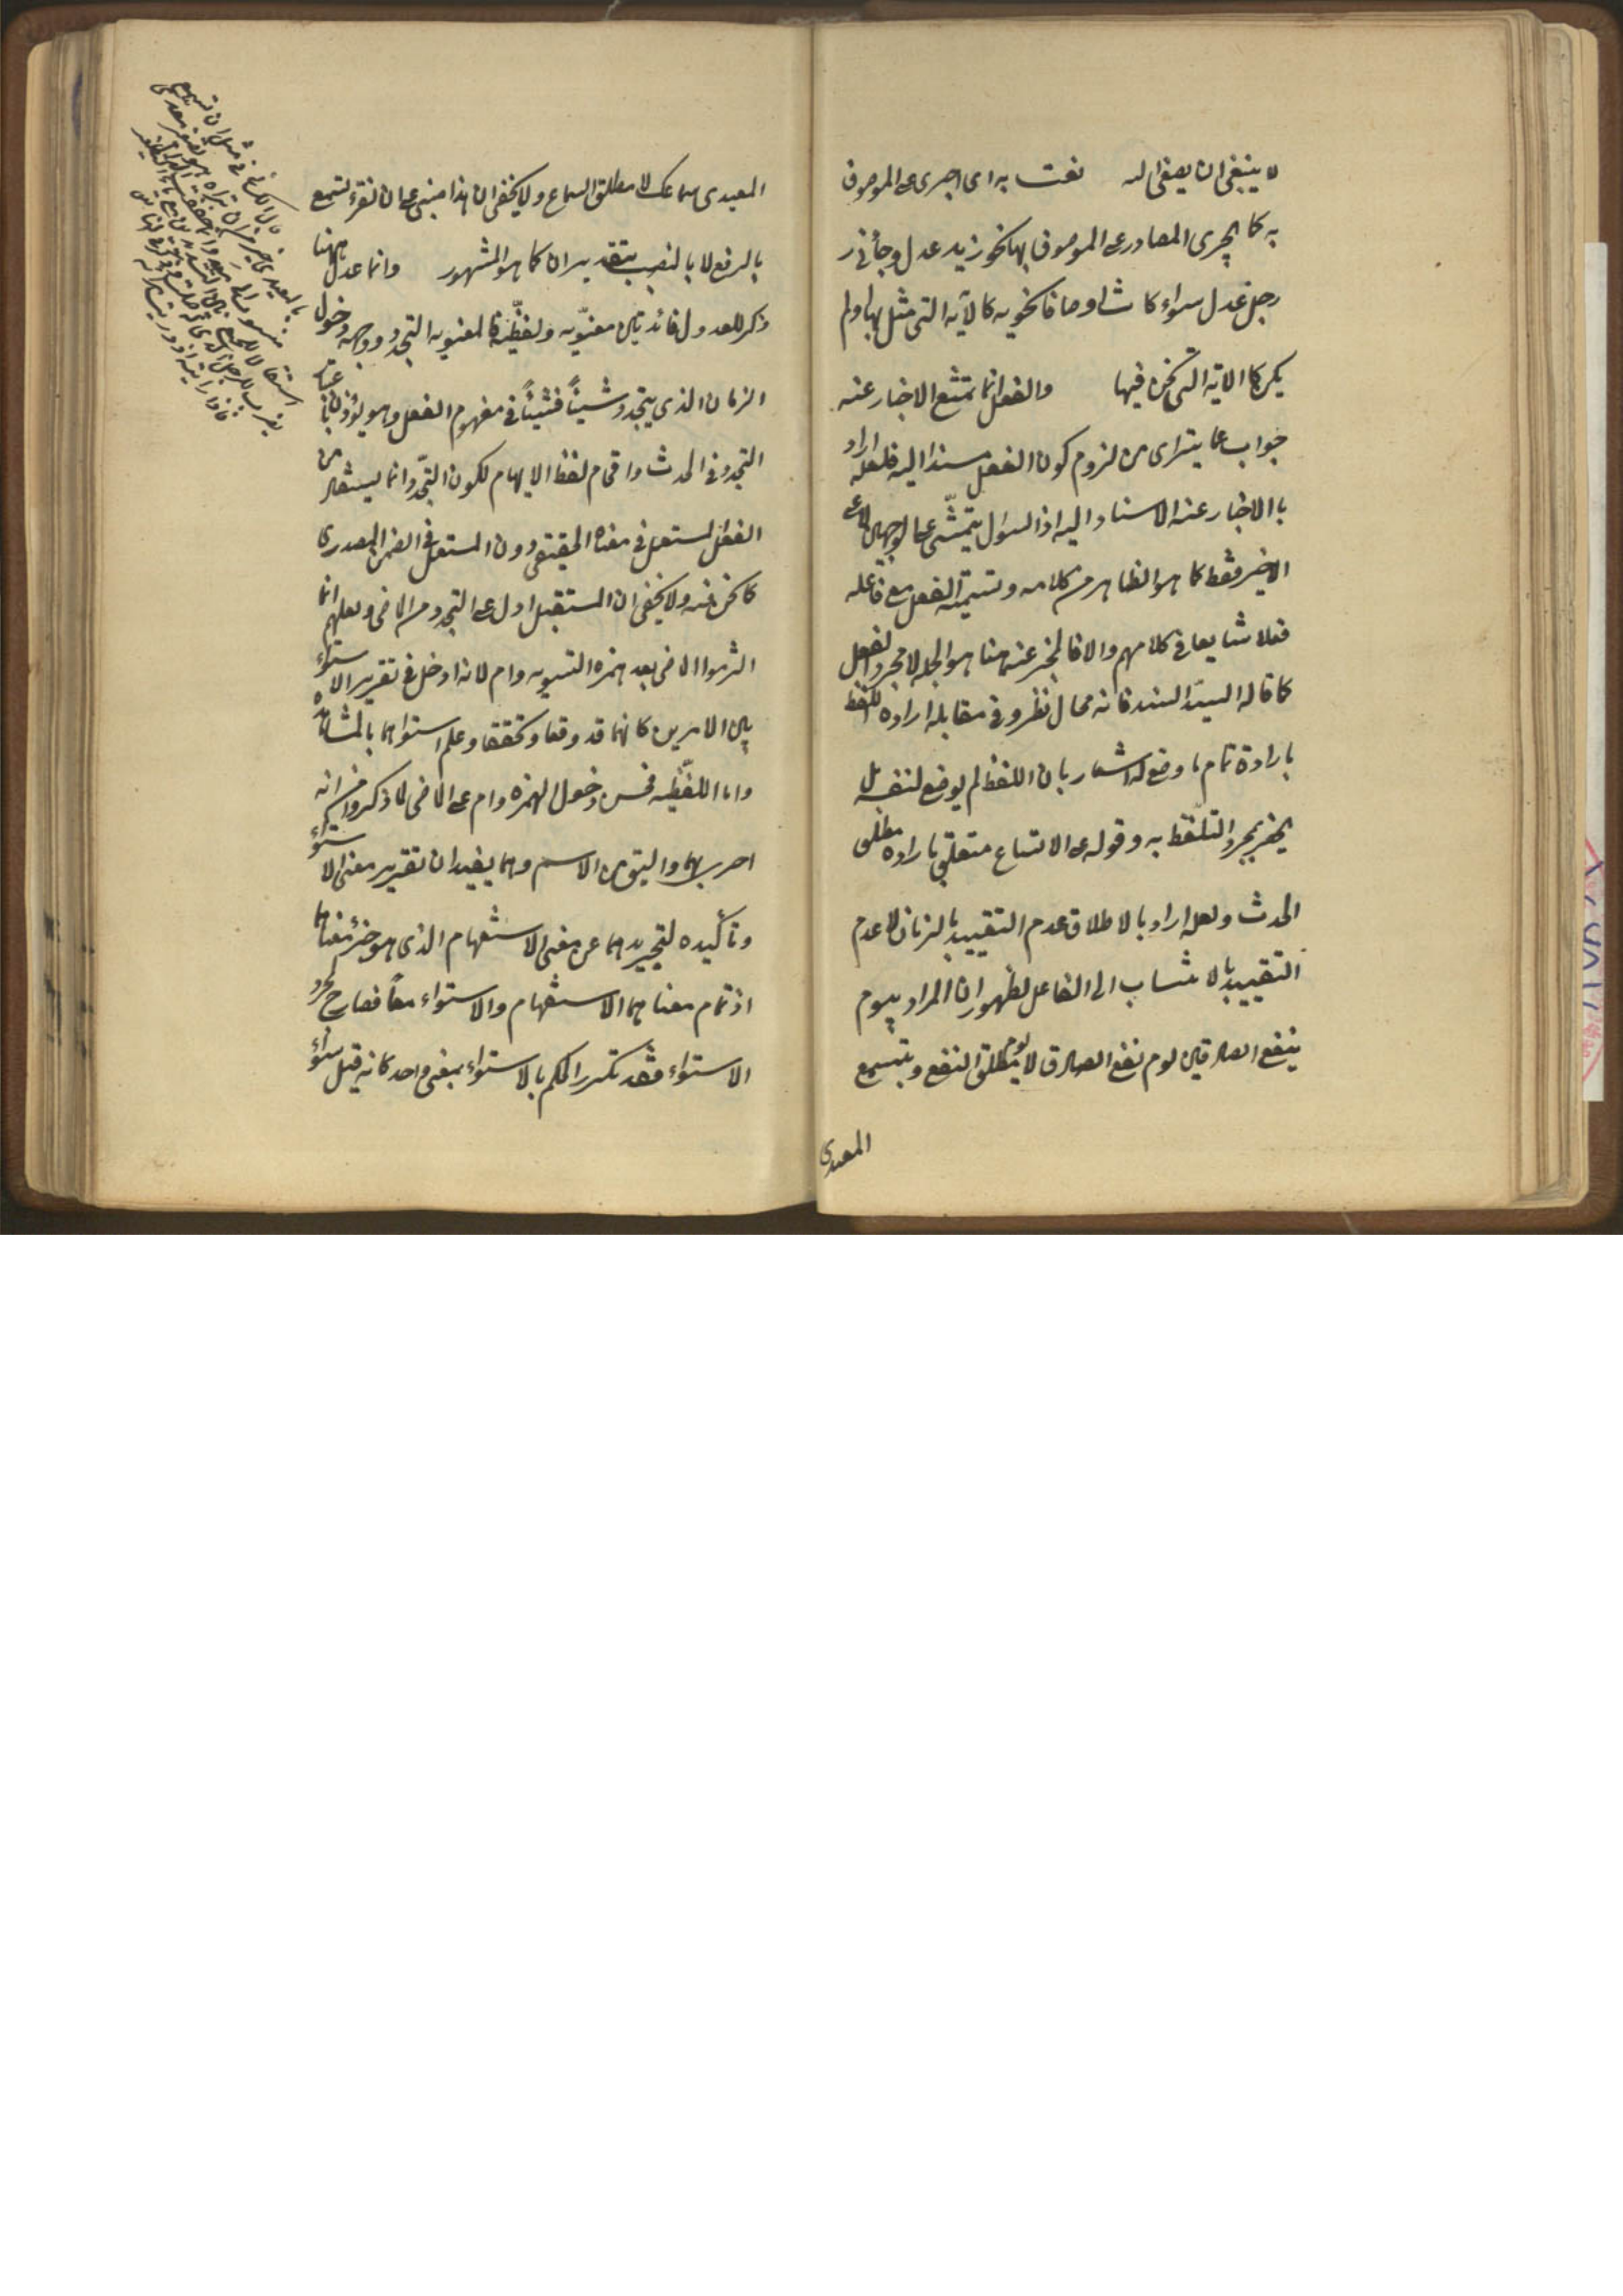 لا ينبغى ان يصغى اليه نعت به اى اجرى على الموصوف
به كما يجرى المصادر على الموصوف بها نحو زيد عدل وجائنى
رجل عدل سواء كانت اوصافا نحويه كالآيه التى مثل بها ولم
يكن كالايه التى نحن فيها والفعل انما يمتنع الاخبار عنه
جواب عما يتراى من لزوم كون الفعل مسندا اليه فلعله اراد
بالاخبار عنه الاسناد اليه اذ السؤال يتمشى على الوجهين لا على
الاخير فقط كما هو الظاهر من كلامه وتسميته الفعل مع فاعله
فعلا شايعا فى كلامهم والا فالمخبر عنه هنا هو الجمله لا مجرد الفعل
كما قاله السيد السند فانه محال نظر وفى مقابله اراده اللفظ
بارادة تمام ما وضع له اشعار بان اللفظ لم يوضع لنفسه بل
يحضر بمجرد التلفظ به وقوله على الاتساع متعلق باراده مطلق
الحدث ولعله اراد بالاطلاق عدم التقييد بالزمان لا عدم
التقييد بالانتساب الى الفاعل لظهور ان المراد بيوم
ينفع الصادقين يوم نفع الصادق لا يوم مطلق النفع وبتسمع
المعيدى
المعيدى سماعك لا مطلق السماع ولا يخفى ان هذا مبنى على ان نقرء لتسمع
بالرفع لا بالنصب بتقدير ان كما هو المشهور وانما عدل ههنا
ذكر للعدول فائدتين معنويه ولفظيه فالمعنويه التجدد ووجهه دخول
الزمان الذى يتجدد شيئاً فشيئاً فى مفهوم الفعل وهو يؤذن باعتبار
التجدد فى الحدث واقحام لفظ الايهام لكون التجدد انما يستفاد من
الفعل المستعمل فى معناه الحقيقى دون المستعمل فى الضمن المصدرى
كما نحن فيه ولا يخفى ان المستقبل ادل على التجدد من الماضى ولعلهم انما
اثروا الماضى بعد همزه التسويه وام لانه ادخل فى تقرير الاستواء
بين الامرين كانهما قد وقعا وتحققا وعلم استواهما بالمشاهده
واما اللفظيه فحسن دخول الهمزه وام على الماضى لما ذكروا من انه
احرى بهما واليق من الاسم وهما يفيدان تقرير معنى الاستواء
وتأكيده لتجريدهما عن معنى الاستفهام الذى هو جزء معناهما
اذ تمام معناهما الاستفهام والاستواء معاً فصارح لمجرد
الاستواء فقد تكرر الحكم بالاستواء بمعنى واحد كانه قيل سواء